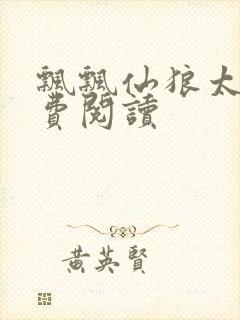 飄飄仙狼太
費閱讀
黃英賢